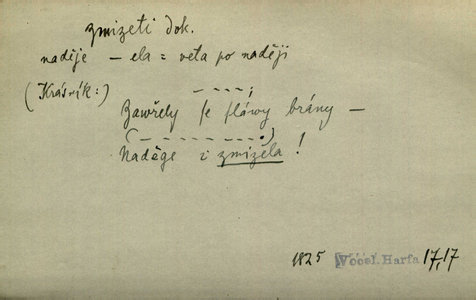 zmizeti dok.
naděje – ela = veta po naději
(Krásník:) – – – – ;
Zawřely se sláwy brány –
(– – – – – – – .)
Naděge i zmizela !
1825 Vocel. Harfa 17,17